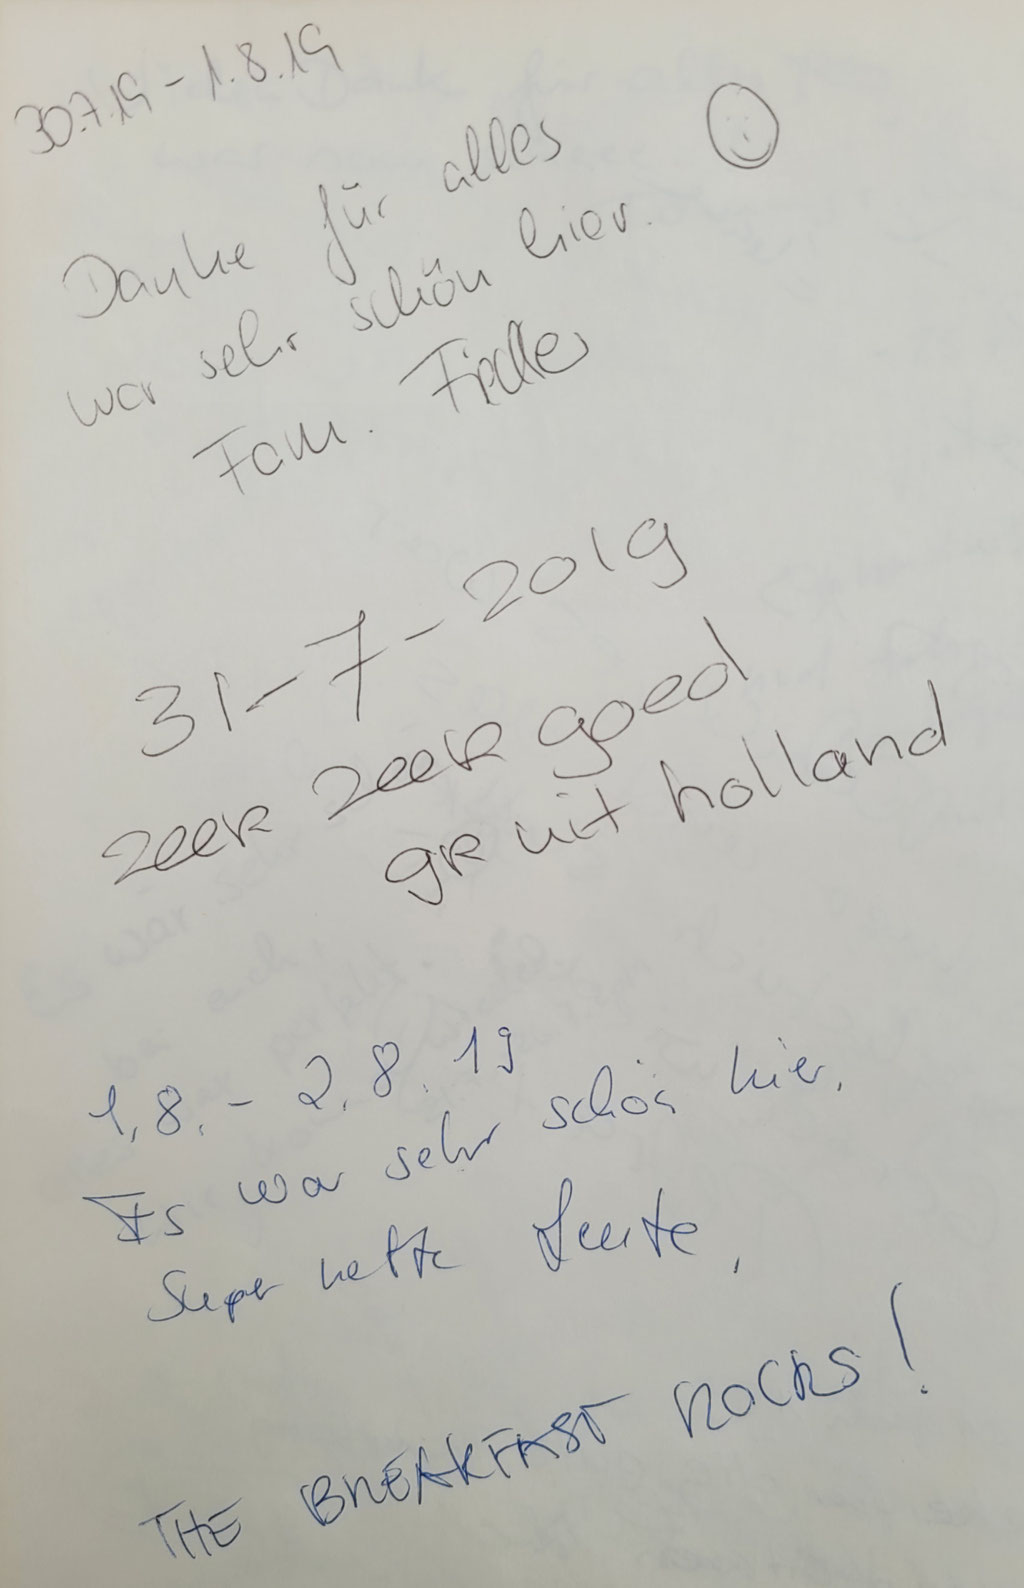 30.7.19 - 1.8.19
Danke für alles
war sehr schön hier.
Fam.
31-7-2019
zeer zeer goed
gr uit holland
1.8. - 2.8.19
Es war sehr schön hier.
Super nette Leute,
THE BREAKFAST ROCKS!